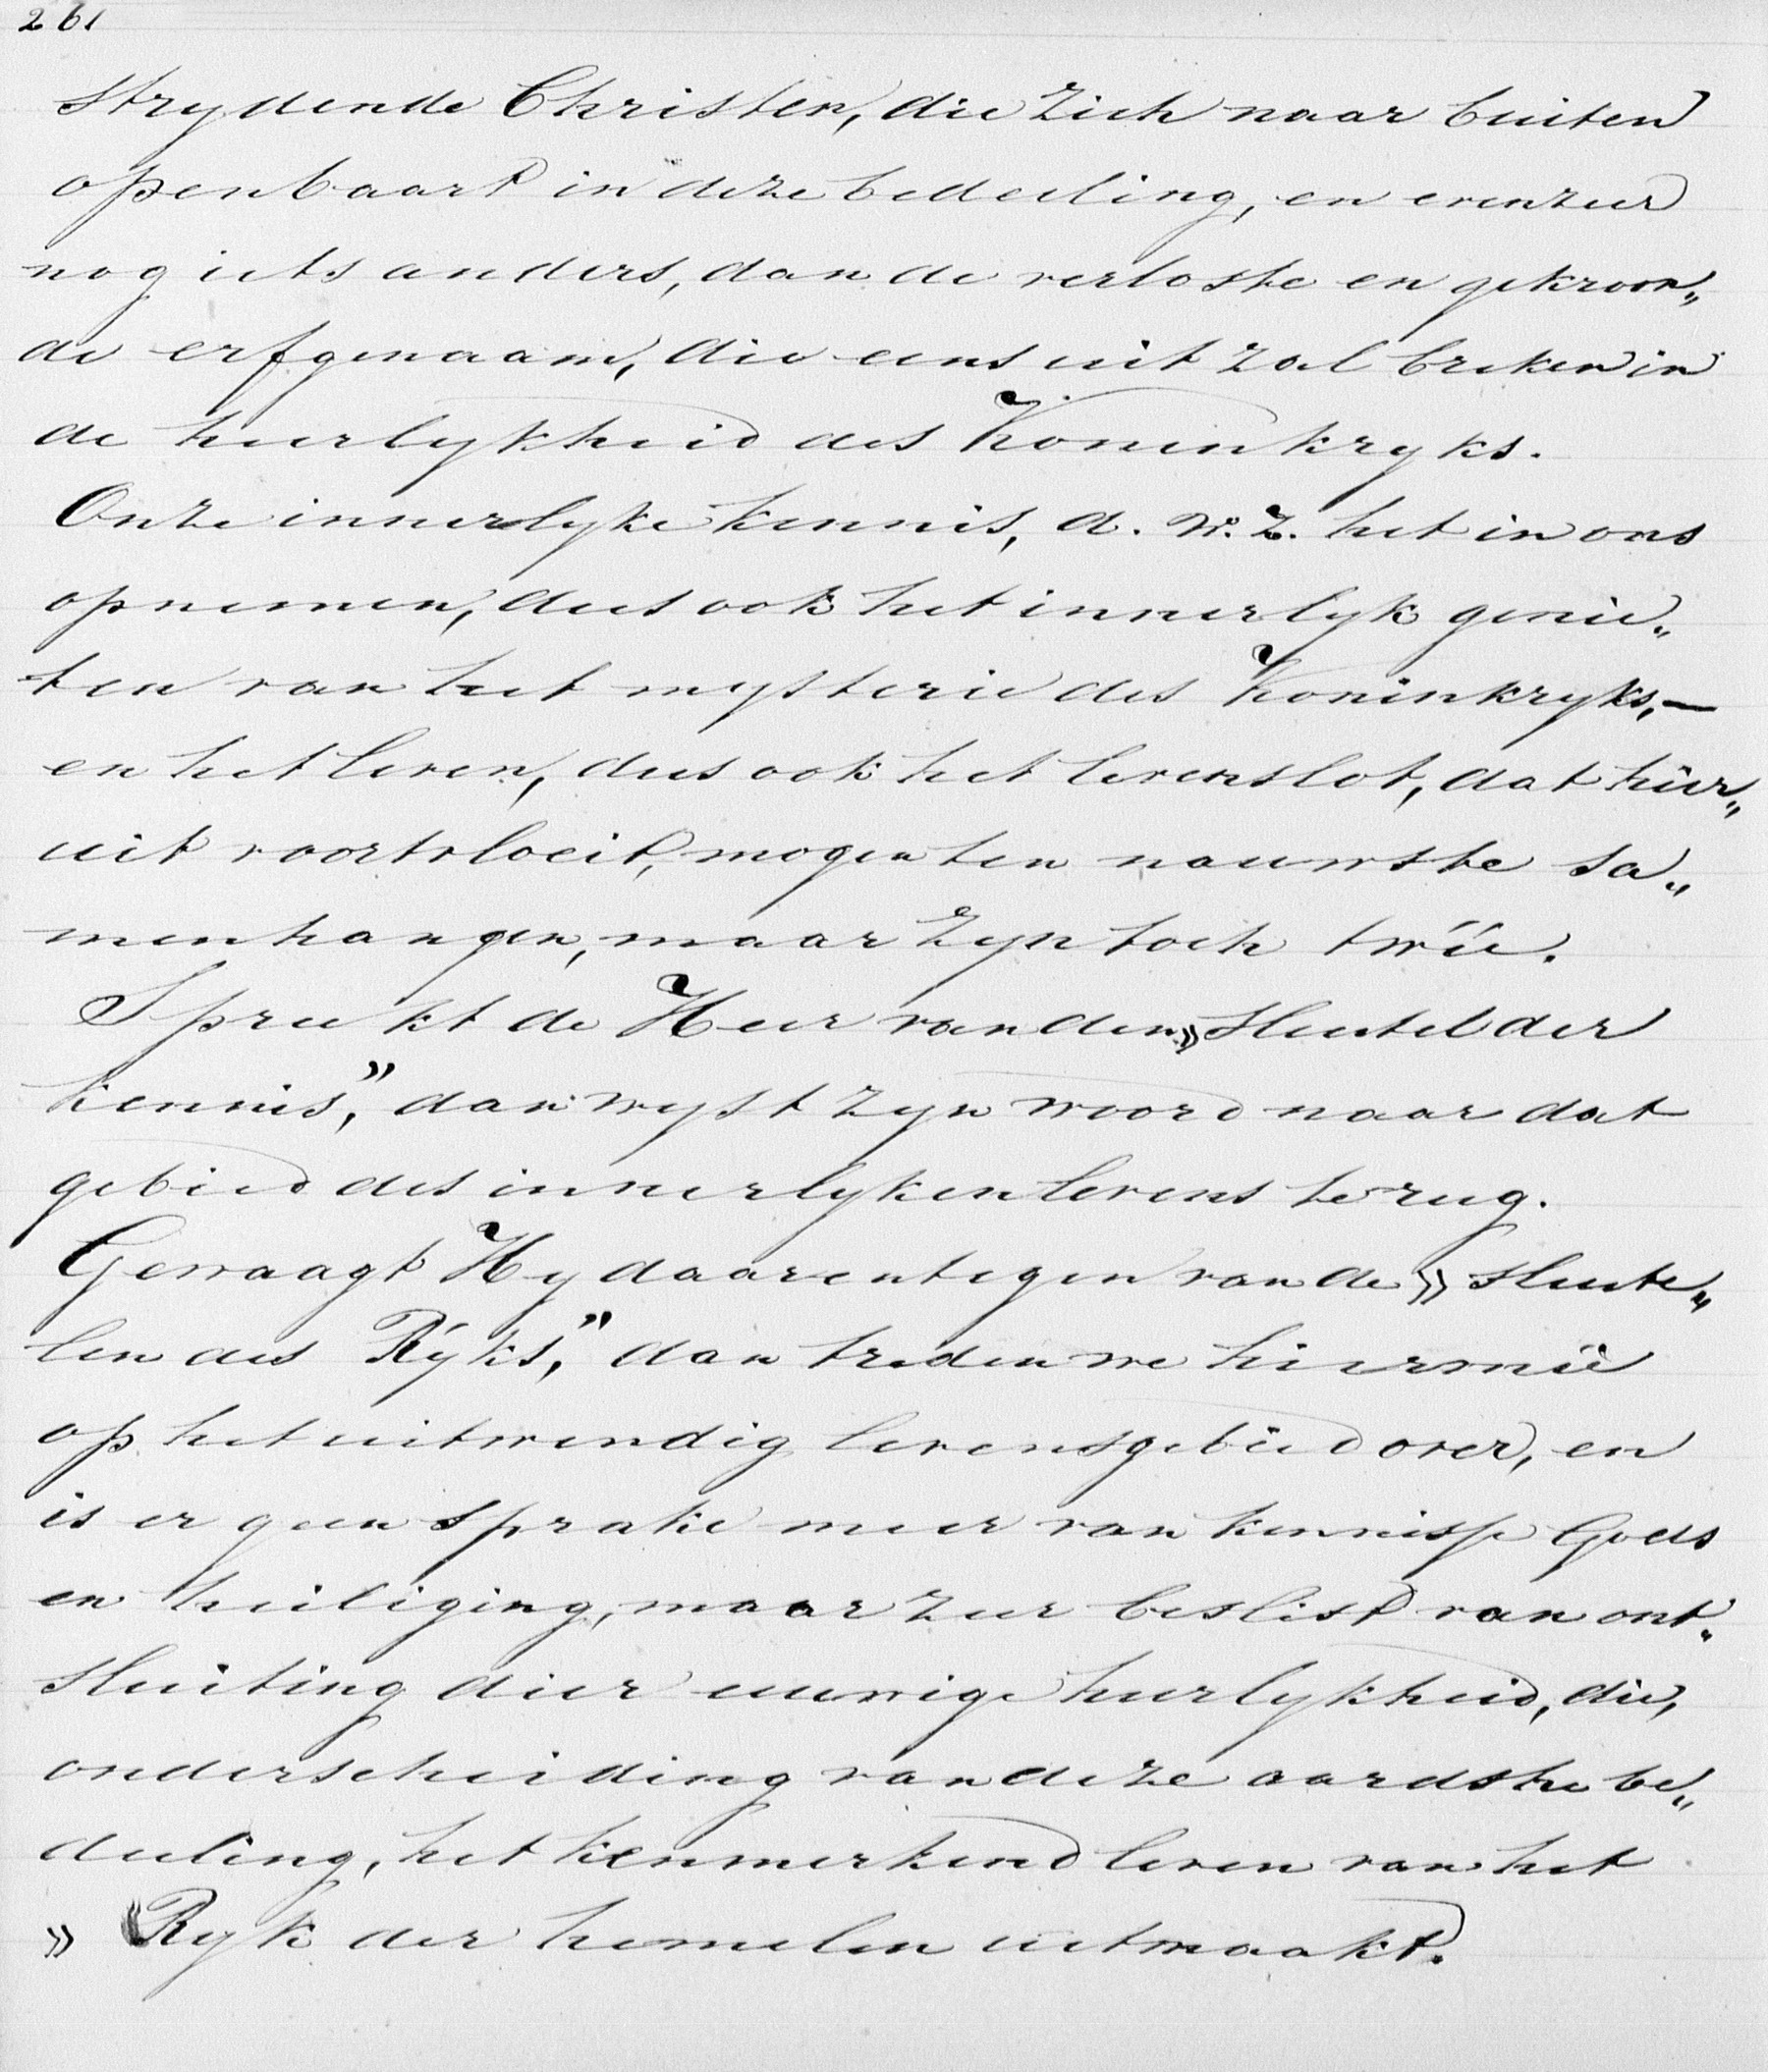 261
strydende Christen, die zich naar buiten
openbaart in deze bedeeling, en evenzeer
nog iets anders, dan de verloste en gekroon„
de erfgenaam, die eens uit zal breken in
de heerlykheid des Koninkryks.
Onze innerlyke kennis, d. w. z. het in ons
opnemen, dus ook het innerlyk genie„
ten van het mysterie des Koninkryks,—
en het leven, dus ook het levenslot, dat hier„
uit voortvloeit, mogen ten nauwste sa„
menhangen, maar zyn toch twée.
Spreekt de Heer van den »sleutel der
kennis,” dan wyst zyn woord naar dat
gebied des innerlyken levens terug.
Gewaagt Hy daarentegen van de »sleute„
len des Ryks,” dan treden we hiermeê
op het uitwendig levensgebied over, en
is er geen sprake meer van kennisse Gods
en heiliging, maar zeer beslist van ont„
sluiting dier eeuwige heerlykheid, die,
onderscheiding van deze aardsche be„
deeling, het kenmerkend leven van het
» Ryk der hemelen uitmaakt.